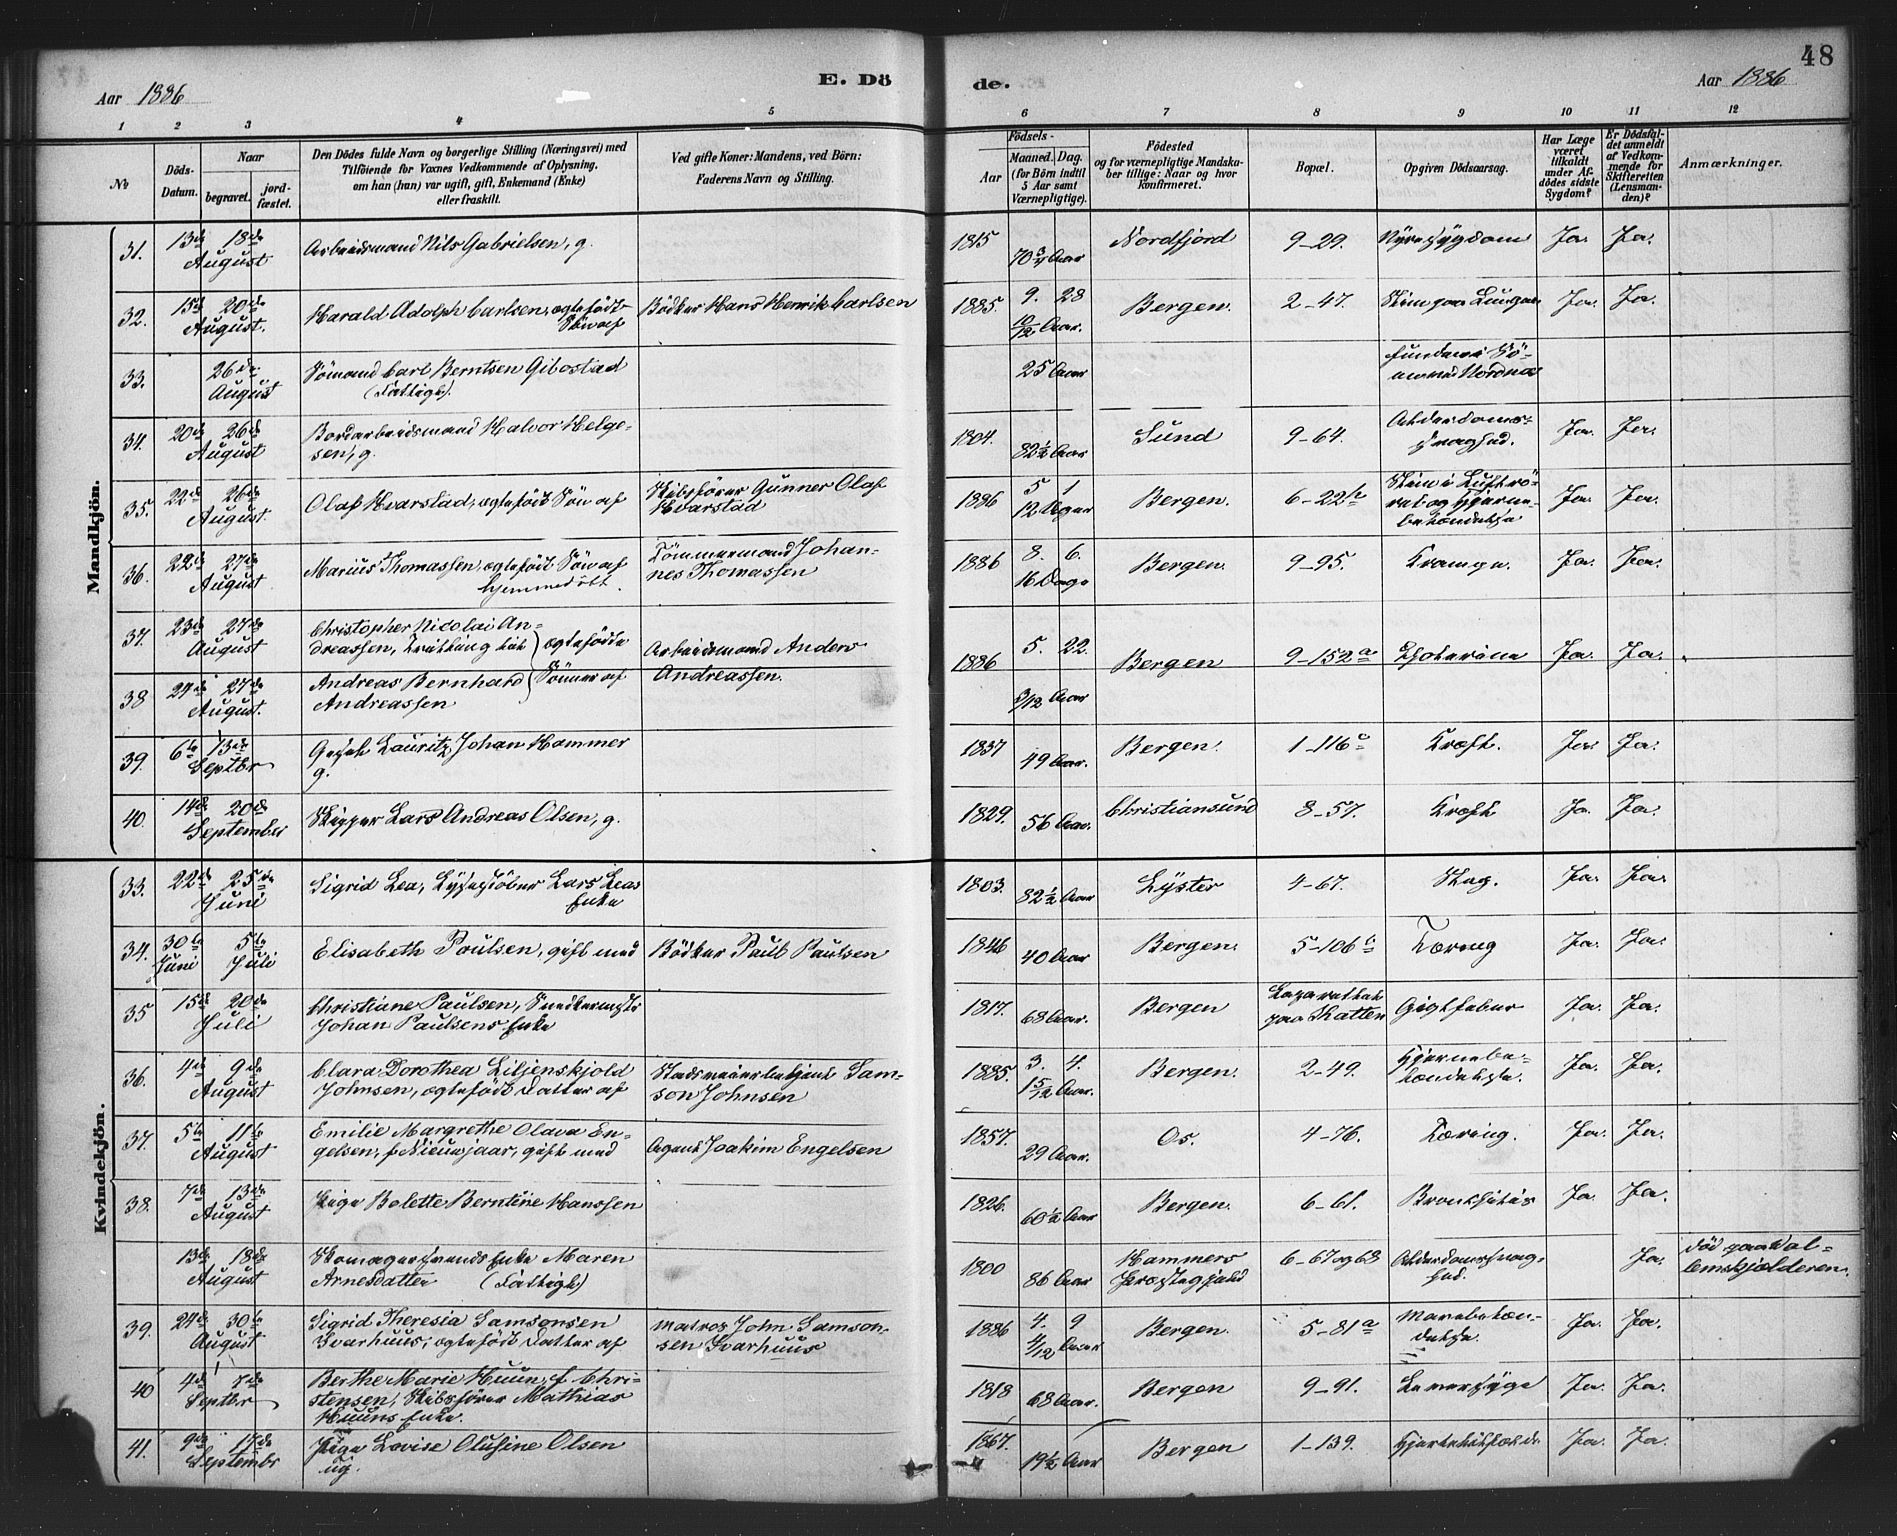 48
Aar 1886
E. Dö
de.
Aar 1886
1 2 3 4 5 6 7 8 9 10 11 12
No
Döds-
Datum.
Naar
begravet.
jord-
fæstet.
Den Dödes fulde Navn og borgerlige Stilling (Næringsvei) med
Tilföiende for Voxnes Vedkommende af Oplysning,
om han (hun) var ugift, gift, Enkemand (Enke)
eller fraskilt.
Ved gifte Koner: Mandens, ved Börn:
Faderens Navn og Stilling.
Födsels-
Aar
Maaned. Dag.
(for Börn indtil
5 Aar samt
Værnepligtige).
Födested
og for værnepligtige Mandska-
ber tillige: Naar og hvor
konfirmeret.
Bopæl.
Opgiven Dödsaarsag.
Har Læge
været
tilkaldt
under Af-
dödes sidste
Sygdom?
Er Dödsfal-
det anmeldt
af Vedkom-
mende for
Skifteretten
(Lensman-
den)?
Anmærkninger.
Mandkjön.
31. 13de 18de August Arbeidsmand Nils Gabrielsen, g. 1815 70 3/4 Aar Nordfjord 9-29. Nyresygdom Ja. Ja.
32. 15de 20de August. Harald Adolph Carlsen, ægtefödt Sön af Bödker Hans Henrik Carlsen 1885. 9. 28 10/12 Aar. Bergen. 2-47. Slim paa Lungen Ja. Ja.
33. 26de August Sömand Carl Berntsen Gibostad (Fattigl). 25 Aar funden i Sö-
en ved Nordnæs
34. 20de 26de August Bordarbeidsmand Halvor Helge-
sen, g. 1804. 82 1/2 Aar Sund 9-64. Alderdoms-
svaghed. Ja. Ja.
35. 22de 26de August. Olaf Hvarstad, ægtefödt Sön af Skibsförer Gunner Olaf
Hvarstad 1886 5 1 12 Uger Bergen. 6-22b Slim i Luftrö-
ret og Hjerne-
betændelse Ja. Ja.
36. 22de 27de August Marius Thomassen, ægtefödt Sön af
hjemmedöbt. Tömmermand Johan-
nes Thomassen 1886 8. 6. 16 Dage Bergen. 9-95. Krampe. Ja. Ja.
37. 23de 27de August Christopher Nicolai An-
dreassen, Tvilling til ægtefödte Arbeidsmand Anders 1886 5. 22. Bergen 9-152a Cholerine Ja. Ja.
38 24de 27de August. Andreas Bernhard Sönner af Andreassen.
Andreassen 3/12 Aar
39. 6te 13de Septbr Gesel Lauritz Johan Hammer
g. 1837 49 Aar. Bergen. 1-116c Kræft. Ja. Ja.
40. 14de 20de September Skipper Lars Andreas Olsen, g. 1829. 56 Aar. Christiansund 8-57. Kræft Ja. Ja.
Kvindekjön.
33. 22de 25de Juni Sigrid Lea, Lysestöber Lars Leas
Enke 1803. 82 1/2 Aar Lyster 4-67. Slag. Ja. Ja.
34. 30te Juni 5te Juli Elisabeth Poulsen, gift med Bödker Paul Paulsen 1846 40 Aar Bergen. 5-106b Tæring Ja. Ja.
35 15de 20de Juli Christiane Paulsen, Snedkermester
Johan Paulsens Enke 1817. 68 Aar. Bergen Lazarettet
paa Katten Gigtfeber Ja. Ja.
36. 4de 9de August Clara Dorothea Liljenskjold
Johnsen, ægtefödt Datter af Sam-
son Johnsen 1885. 3. 4. 1 5/12 Aar. Bergen. 2-49. Hjernebe-
tændelse. Ja. Ja.
37. 5te 11te August Emilie Margrethe Olava En-
gelsen, f Nieuwjaar, gift med Agent Joakim Engelsen 1857. 29 Aar. Os. 4-76. Tæring. Ja. Ja.
38. 7de 13de August Pige Bolette Berntine Hanssen 1826. 60 1/2 Aar Bergen. 6-61. Bronkhitis Ja. Ja.
13de 18de August Skomagersvends Enke Maren
Arnesdatter (Fattigl) 1800 86 Aar Hammers
Præstegjæld 6-67 og 68 Alderdomssvag-
hed. Ja. död paa Dal-
emskjælderen.
39. 24de 30te August Sigrid Theresia Samsonsen
Kvarhuus, ægtefödt Datter af Matros John Samson-
sen Kvarhuus 1886 4. 9 4/12 Aar Bergen. 5-81a Mavebetæn-
delse. Ja. Ja.
40 4de 7de Septbr Berthe Marie Huun, f. Chri-
stensen, Skibsförer Mathias
Huuns Enke. 1818 68 Aar. Bergen 9-91. Leversyge Ja. Ja.
41. 9de 17de Septembr Pige Lovise Olufine Olsen
ug. 1867. 19 1/2 Aar Bergen 1-139. Ja. Ja.